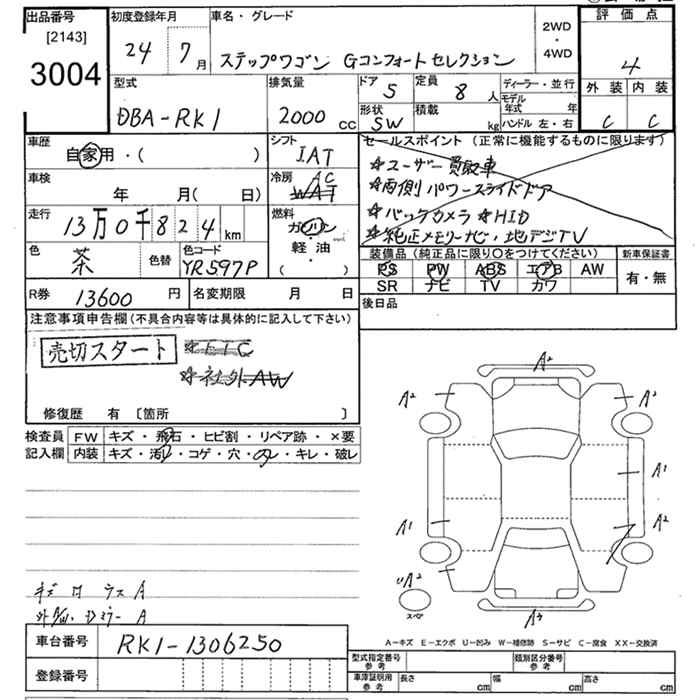 出品番号
[2143]
3004
初度登録年月
24 7月
車名・グレード
ステップワゴン Gコンフォートセレクション
2WD
・
4WD
評価点
4
外装 内装
C C
型式
DBA-RK1
排気量
2000 cc
ドア 5
定員 8 人
形状 SW
積載 kg
ディーラー・並行
モデル年式 年
ハンドル 左・右
車歴
自家用・( )
シフト
IAT
セールスポイント (正常に機能するものに限ります)
☆ユーザー買取車
☆両側パワースライドドア
☆バックカメラ ☆HID
☆純正メモリーナビ・地デジTV
車検
年 月( 日)
冷房 AC
WAT
走行
13万0千824 km
燃料
ガソリン
軽・油
( )
色
茶
色替
色コード
YR597P
装備品 (純正品に限り○をつけてください)
PS PW ABS エアB AW
SR ナビ TV カワ
新車保証書
有・無
R券 13600 円
名変期限 月 日
後日品
注意事項申告欄 (不具合内容等は具体的に記入して下さい)
売切スタート
☆ETC
☆社外AW
修復歴 有 〔箇所 〕
検査員
記入欄
FW キズ・飛石・ヒビ割・リペア跡・×要
内装 キズ・汚レ・コゲ・穴・のり・キレ・破レ
A2
A2 A2
A1
A1 A2
UA2
スペア
A3
A-キズ E-エクボ U-凹み W-補修跡 S-サビ C-腐食 XX-交換済
車台番号 RK1-1306250
登録番号
型式指定番号 参考
類別区分番号 参考
車庫証明用 参考
長さ cm 幅 cm 高さ cm